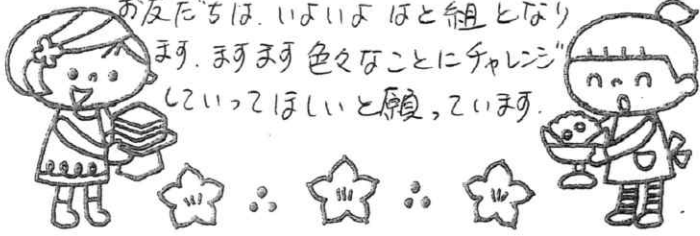 お友だちは、いよいよ はと組 となり
ます。ますます色々なことにチャレンジ
していってほしいと願っています。